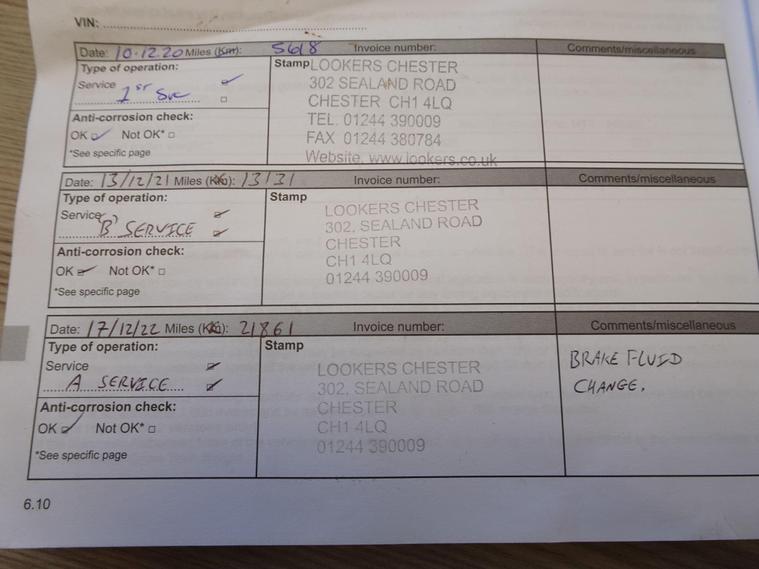 VIN:
Date: 10.12.20 Miles (Km): 5618 Invoice number: Comments/miscellaneous
Type of operation: Stamp LOOKERS CHESTER
Service 302 SEALAND ROAD
1st Svc CHESTER CH1 4LQ
Anti-corrosion check: TEL. 01244 390009
OK Not OK* FAX 01244 380784
*See specific page Website. www.lookers.co.uk
Date: 13/12/21 Miles (Km): 13131 Invoice number: Comments/miscellaneous
Type of operation: Stamp LOOKERS CHESTER
Service 302, SEALAND ROAD
'B' SERVICE CHESTER
Anti-corrosion check: CH1 4LQ
OK Not OK* 01244 390009
*See specific page
Date: 17/12/22 Miles (Km): 21861 Invoice number: Comments/miscellaneous
Type of operation: Stamp
Service LOOKERS CHESTER BRAKE FLUID
A SERVICE 302, SEALAND ROAD CHANGE.
Anti-corrosion check: CHESTER
OK Not OK* CH1 4LQ
*See specific page 01244 390009
6.10